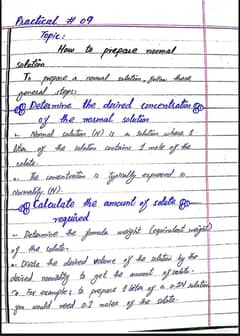 Practical # 09
Topic:
How to prepare normal
solution
To prepare a normal solution, follow these
general steps:
Determine the desired concentration
of the normal solution
Normal solution (N) is a solution where 1
liter of the solution contains 1 mole of the
solute.
The concentration is typically expressed in
Normality (N).
Calculate the amount of solute
required
Determine the formula weight (equivalent weight)
of the solute.
Divide the desired volume of the solution by the
desired normality to get the amount of solute.
For example, to prepare 1 liter of a 0.2N solution
you would need 0.2 moles of the solute.